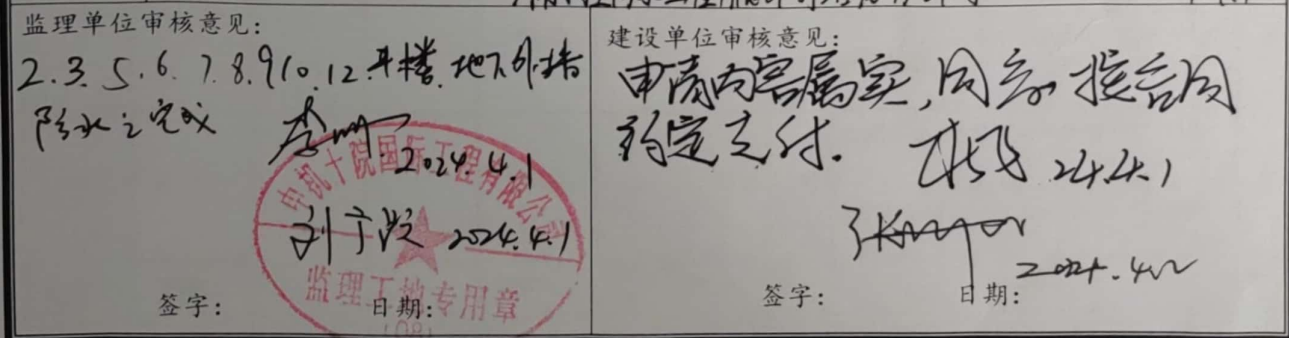 监理单位审核意见:
2.3.5.6.7.8.9.10.12.#楼.地下外墙
防水已完成
2024.4.1
中机十院国际工程有限公司
2024.4.1
监理工地专用章
(08)
签字: 日期:
建设单位审核意见:
申请内容属实,同意按合同
约定支付.
24.4.1
2024.4.2
签字: 日期: